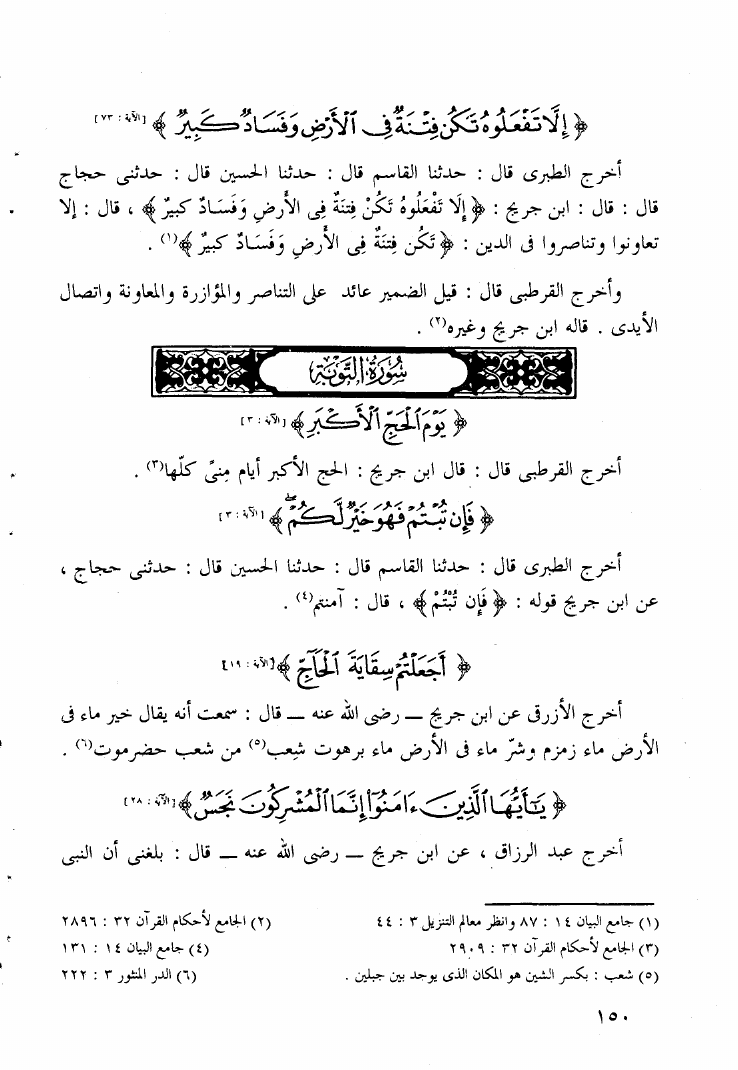 ﴿ إِلَّا تَفْعَلُوهُ تَكُن فِتْنَةٌ فِى ٱلْأَرْضِ وَفَسَادٌ كَبِيرٌ ﴾ [الآية : ٧٣]
أخرج الطبرى قال : حدثنا القاسم قال : حدثنا الحسين قال : حدثنى حجاج
قال : قال : ابن جريج : ﴿ إِلَّا تَفْعَلُوهُ تَكُنْ فِتنَةٌ فِى الأَرضِ وَفَسَادٌ كبيرٌ ﴾ ، قال : إلا
تعاونوا وتناصروا فى الدين : ﴿ تَكُن فِتنَةٌ فِى الأَرْضِ وَفَسَادٌ كَبيرٌ ﴾(١) .
وأخرج القرطبى قال : قيل الضمير عائد على التناصر والمؤازرة والمعاونة واتصال
الأيدى . قاله ابن جريج وغيره(٢) .
سُورَةُ التَّوبَةِ
﴿ يَوْمَ ٱلْحَجِّ ٱلْأَكْبَرِ ﴾ [الآية : ٣]
أخرج القرطبى قال : قال ابن جريج : الحج الأكبر أيام مِنىً كلّها(٣) .
﴿ فَإِن تُبْتُمْ فَهُوَ خَيْرٌ لَّكُمْ ۖ ﴾ [الآية : ٣]
أخرج الطبرى قال : حدثنا القاسم قال : حدثنا الحسين قال : حدثنى حجاج ،
عن ابن جريج قوله : ﴿ فَإِن تُبْتُمْ ﴾ ، قال : آمنتم(٤) .
﴿ أَجَعَلْتُمْ سِقَايَةَ ٱلْحَآجِّ ﴾ [الآية : ١٩]
أخرج الأزرقى عن ابن جريج – رضى الله عنه – قال : سمعت أنه يقال خير ماء فى
الأرض ماء زمزم وشرّ ماء فى الأرض ماء برهوت شِعب(٥) من شعب حضرموت(٦) .
﴿ يَـٰٓأَيُّهَا ٱلَّذِينَ ءَامَنُوٓا۟ إِنَّمَا ٱلْمُشْرِكُونَ نَجَسٌ ﴾ [الآية : ٢٨]
أخرج عبد الرزاق ، عن ابن جريج – رضى الله عنه – قال : بلغنى أن النبى
(١) جامع البيان ١٤ : ٨٧ وانظر معالم التنزيل ٣ : ٤٤ (٢) الجامع لأحكام القرآن ٣٢ : ٢٨٩٦
(٣) الجامع لأحكام القرآن ٣٢ : ٢٩٠٩ (٤) جامع البيان ١٤ : ١٣١
(٥) شعب : بكسر الشين هو المكان الذى يوجد بين جبلين . (٦) الدر المنثور ٣ : ٢٢٢
١٥٠